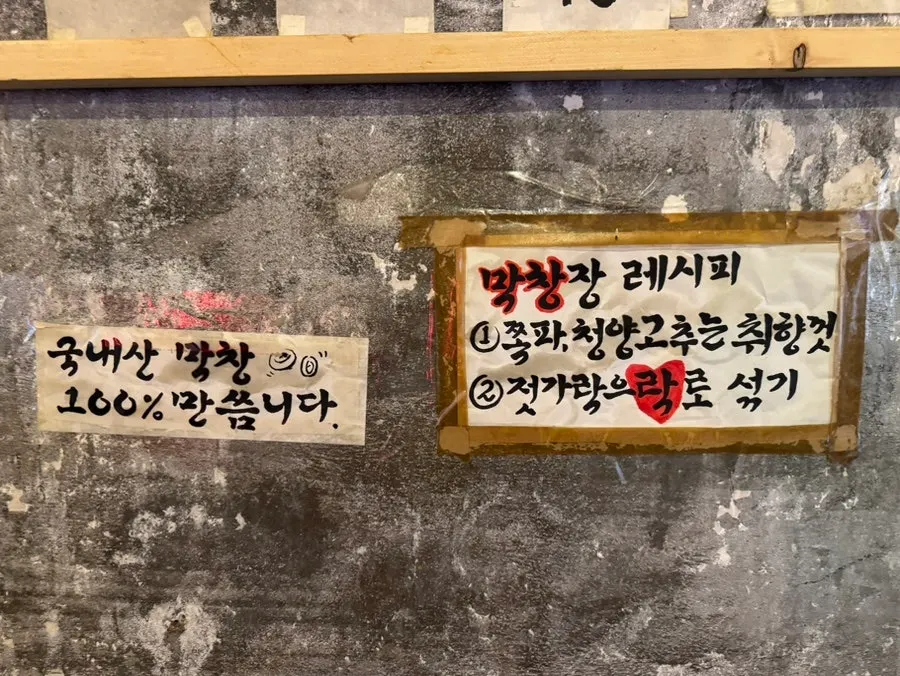 국내산 막창
100%만 씀니다.
막창장 레시피
①쪽파,청양고추는 취향껏
②젓가락으락로 섞기